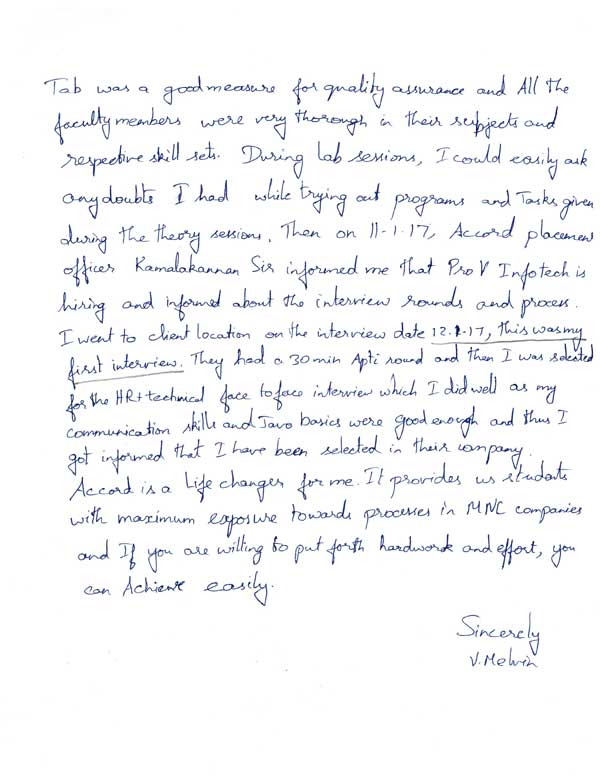 Tab was a good measure for quality assurance and All the
faculty members were very thorough in their subjects and
respective skill sets. During lab sessions, I could easily ask
any doubts I had while trying out programs and Tasks given
during the theory sessions. Then on 11-1-17, Accord placement
officer Kamalakannan Sir informed me that Pro V Infotech is
hiring and informed about the interview rounds and process.
I went to client location on the interview date 12.1-17, this was my
first interview. They had a 30 min Apti round and then I was selected
for the HR+technical face to face interview which I did well as my
communication skills and Java basics were good enough and thus I
got informed that I have been selected in their company.
Accord is a Life changer for me. It provides us students
with maximum exposure towards processes in MNC companies
and If you are willing to put forth hardwork and effort, you
can Achieve easily.
Sincerely
V. Melvin